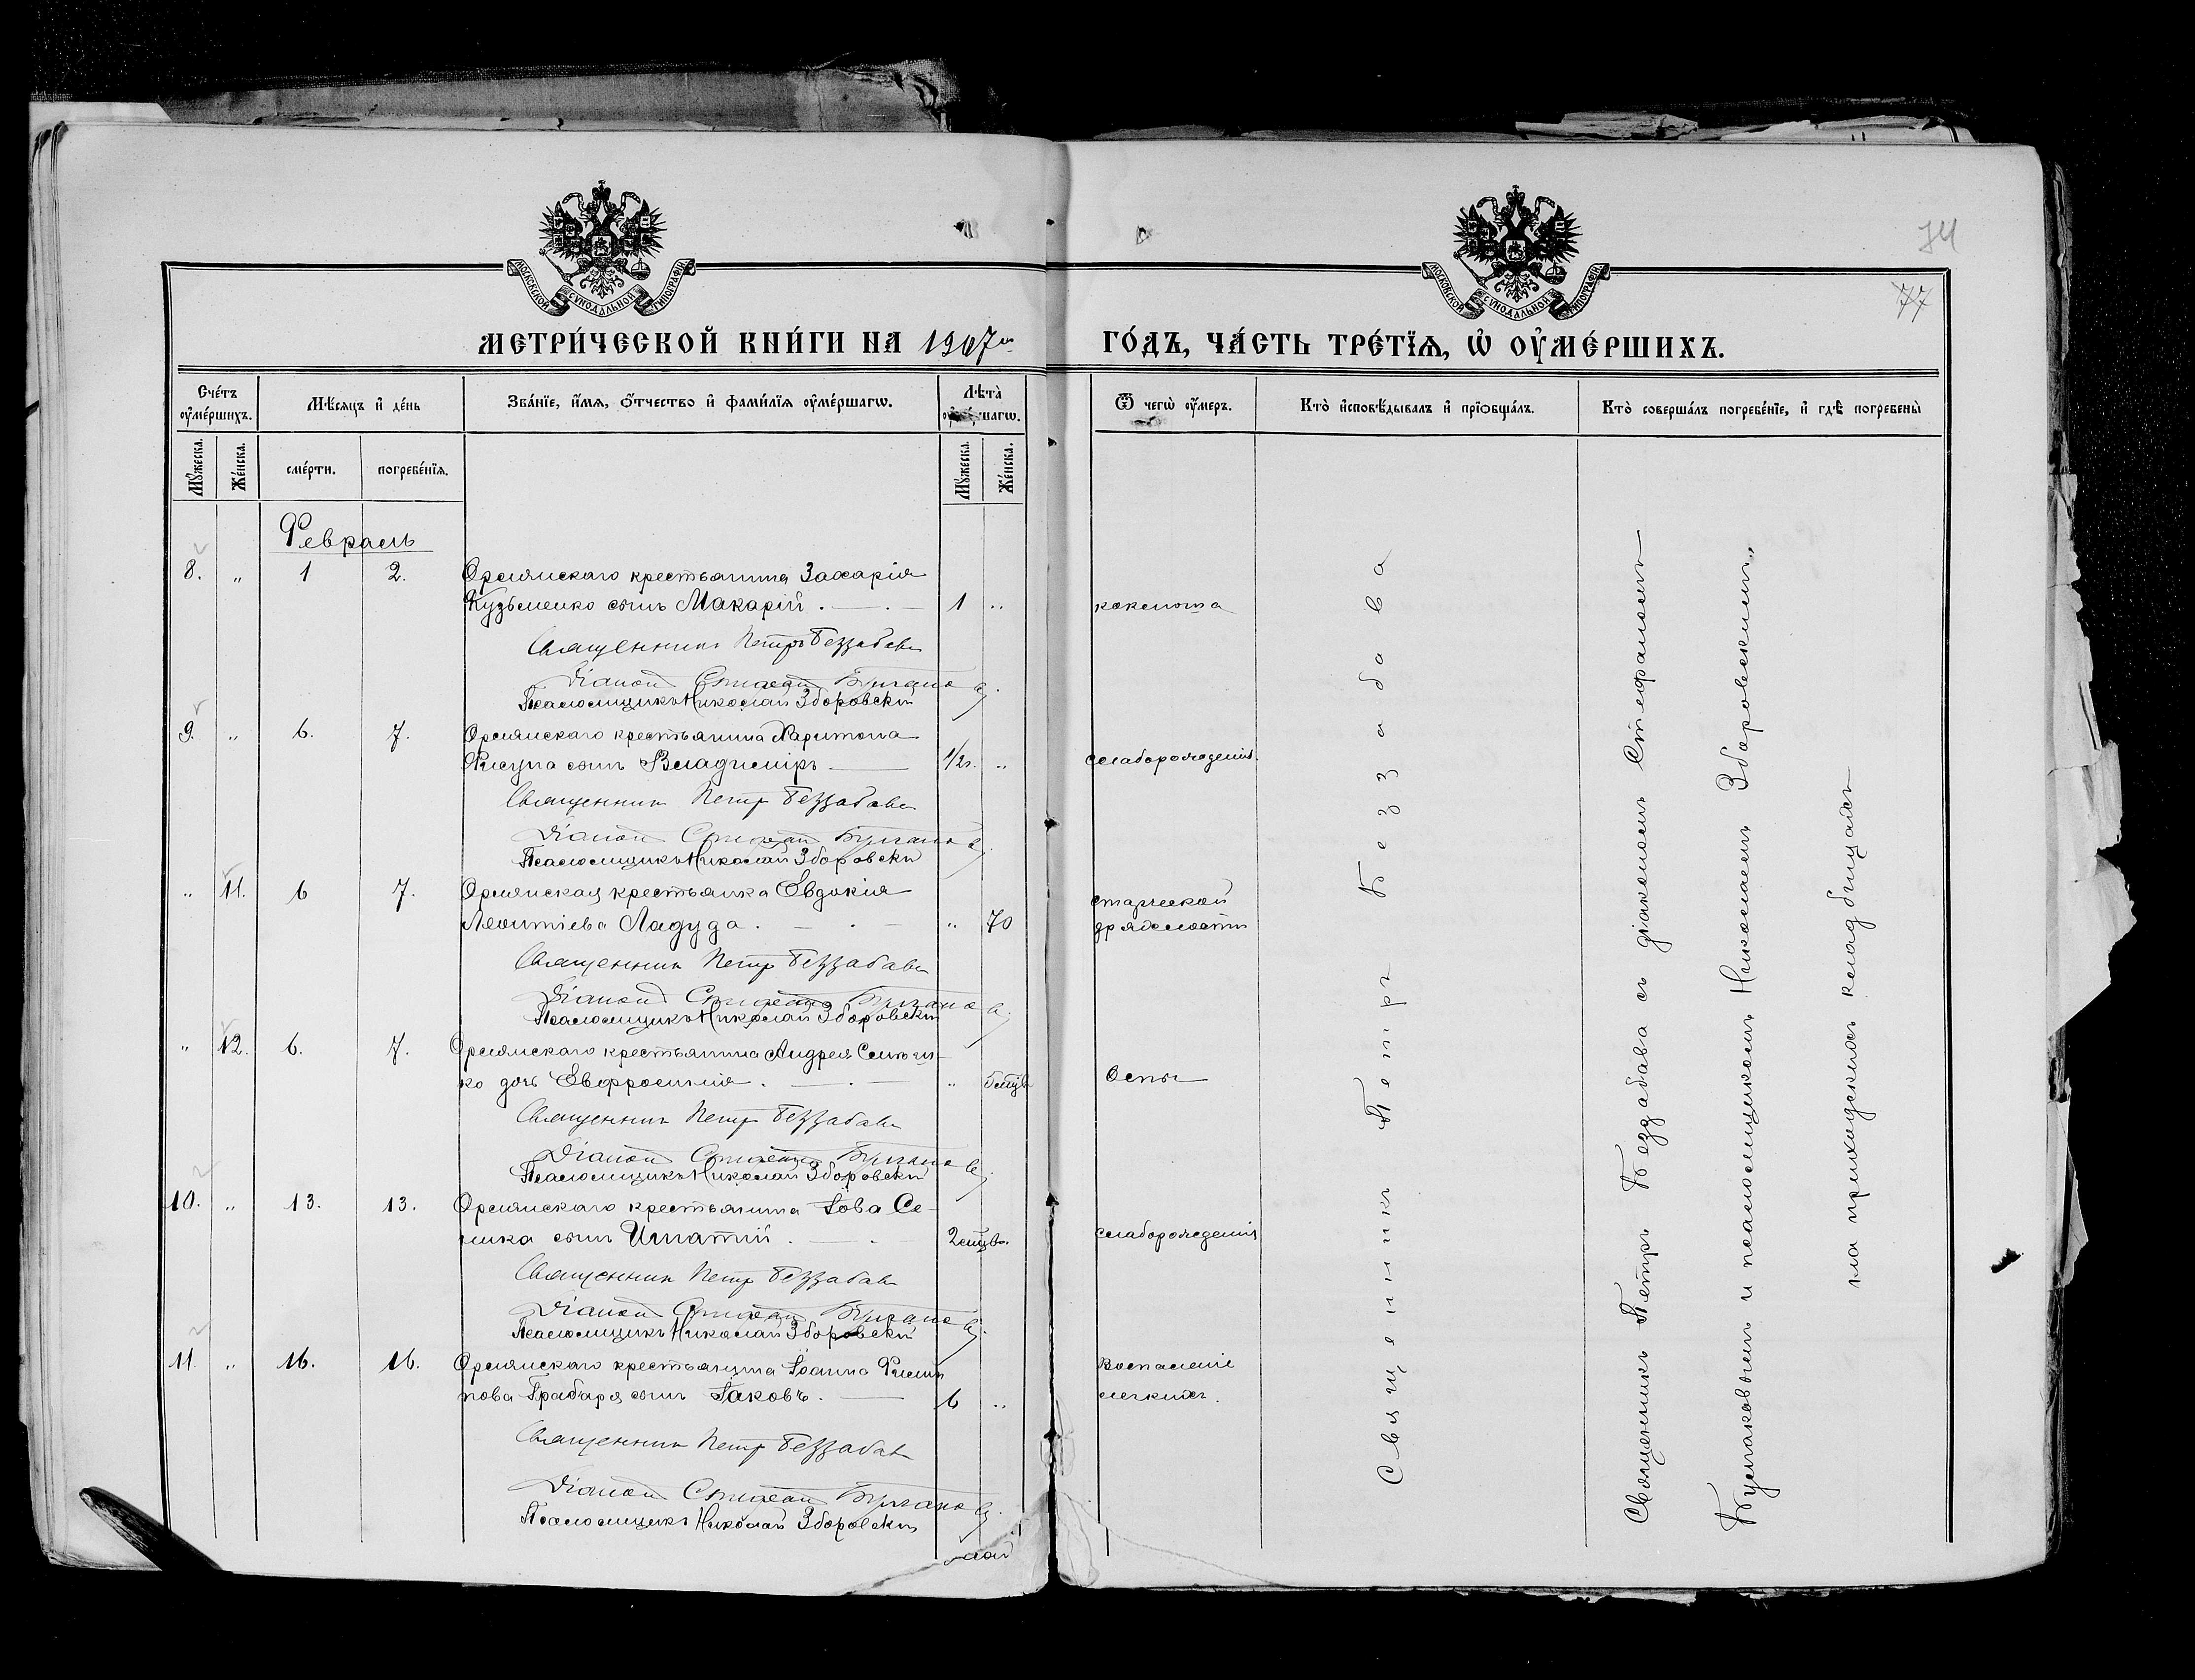 МОСКОВСКОЙ СУНОДАЛЬНОЙ ТИПОГРАФІИ
МОСКОВСКОЙ СУНОДАЛЬНОЙ ТИПОГРАФІИ
74
77
МЕТРИ́ЧЕСКОЙ КНИ́ГИ НА 1907 ГО́ДЪ, ЧА́СТЬ ТРЕ́ТІѦ, Ѡ ОУ҆МЕ́РШИХЪ.
Сче́тъ оу҆ме́ршихъ.
Мѣ́сѧцъ и҆ де́нь
Зва́нїе, и҆́мѧ, ѻ҆́тчество и҆ фами́лїѧ оу҆ме́ршагѡ.
Лѣ́та оу҆ме́ршагѡ.
Ѿ чегѡ̀ оу҆́меръ.
Кто̀ и҆сповѣ́дывалъ и҆ прїѡбща́лъ.
Кто̀ соверша́лъ погребе́нїе, и҆ гдѣ̀ погребены̀
Мꙋ́жеска.
Же́нска.
сме́рти.
погребе́нїѧ.
Мꙋ́жеска.
Же́нска.
Февраль
8. „ 1 2. Орлянскаго крестьянина Захарія
Кузьменко сынъ Макарій. 1 „ коклюша
Священникъ Петръ Беззабава
Діаконъ Стефанъ Булгаковъ
Псаломщикъ Николай Зборовскій
9. „ 6. 7. Орлянскаго крестьянина Харитона
сынъ Владиміръ 1/2 г. „ слаборожденія.
Священникъ Петръ Беззабава
Діаконъ Стефанъ Булгаковъ
Псаломщикъ Николай Зборовскій
„ 11. 6 7. Орлянская крестьянка Евдокія
Леонтіева Ладуда. „ 70 старческой
дряхлости
Священникъ Петръ Беззабава
Діаконъ Стефанъ Булгаковъ
Псаломщикъ Николай Зборовскій
„ 12. 6. 7. Орлянскаго крестьянина Андрея
ко дочь Евфросинія. „ Оспы
Священникъ Петръ Беззабава
Діаконъ Стефанъ Булгаковъ
Псаломщикъ Николай Зборовскій
10. „ 13. 13. Орлянскаго крестьянина Іова Се-
ника сынъ Игнатій. слаборожденія
Священникъ Петръ Беззабава
Діаконъ Стефанъ Булгаковъ
Псаломщикъ Николай Зборовскій
11. „ 16. 16. Орлянскаго крестьянина Іоанна Филип
пова Грабаря сынъ Іаковъ. 6 „ Воспаленіе
легкихъ.
Священникъ Петръ Беззабава
Діаконъ Стефанъ Булгаковъ
Псаломщикъ Николай Зборовскій
Священникъ Петръ Беззабава
Священникъ Петръ Беззабава съ діакономъ Стефаномъ
Булгаковымъ и псаломщикомъ Николаемъ Зборовскимъ
на приходскомъ кладбищѣ